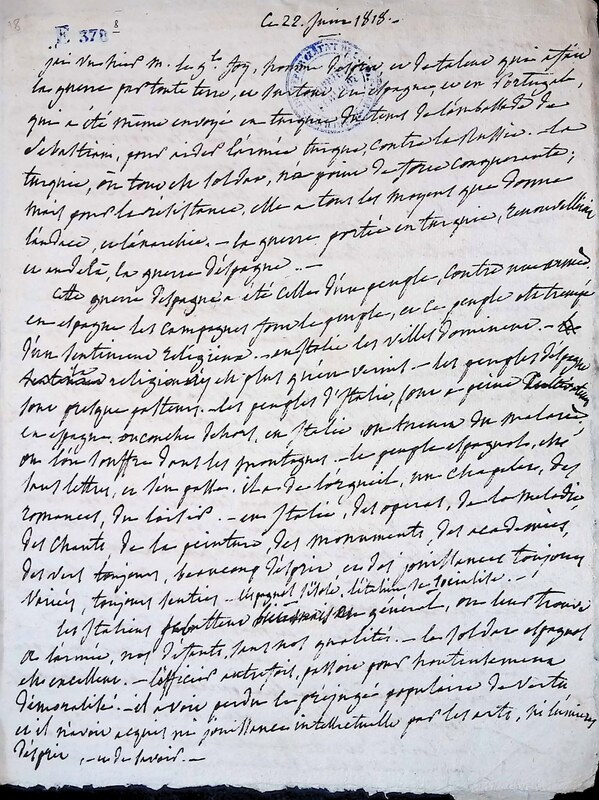 8
E 378
Ce 22. Juin 1818. -
j'ai vu hier m. le g.al Foy, homme d'esprit et de talent qui a fait
la guerre par toute terre, et surtout en espagne, et en Portugal,
qui a été même envoyé en turquie du tems de l'ambassade de
Sebastiani, pour aider l'armée turque, contre la Russie. - la
turquie, où tout est soldat, n'a point de force conquerante;
mais pour la résistance, elle a tous les moyens que donne
l'audace, et l'anarchie. - la guerre portée en turquie, renouvellerait
et au delà, la guerre d'espagne. -
Cette guerre d'espagne a été celle d'un peuple, contre une armée.
en espagne les campagnes sont le peuple, et ce peuple est trempé
d'un sentiment religieux. - en Italie les villes dominent. -
religion est plus qu'en - les peuples d'espagne
sont presque pasteurs. - les peuples d'Italie, sont à peine
en espagne on couche dehors, en Italie, on
ou l'on souffre dans les montagnes. - le peuple espagnol, est
sans lettres, et s'en passe. il a de l'orgueil, un chapelet, des
romances, du loisir. - en Italie, des operas, de la melodie
des chants, de la peinture, des monuments, des académies,
des vers toujours, beaucoup d'esprit et des jouissances toujours
variées, toujours senties. - l'espagnol s'isole, l'italien se socialise. -
les Italiens en général, on leur trouve
à l'armée, nos defauts, sans nos qualités. - le soldat espagnol
est excellent. - l'officier autrefois, passait pour honteusement
démoralisé. - il avait perdu le préjugé populaire de vertu
et il n'avait acquis ni jouissance intellectuelle par les arts, ni lumières
d'esprit, - et de savoir. -